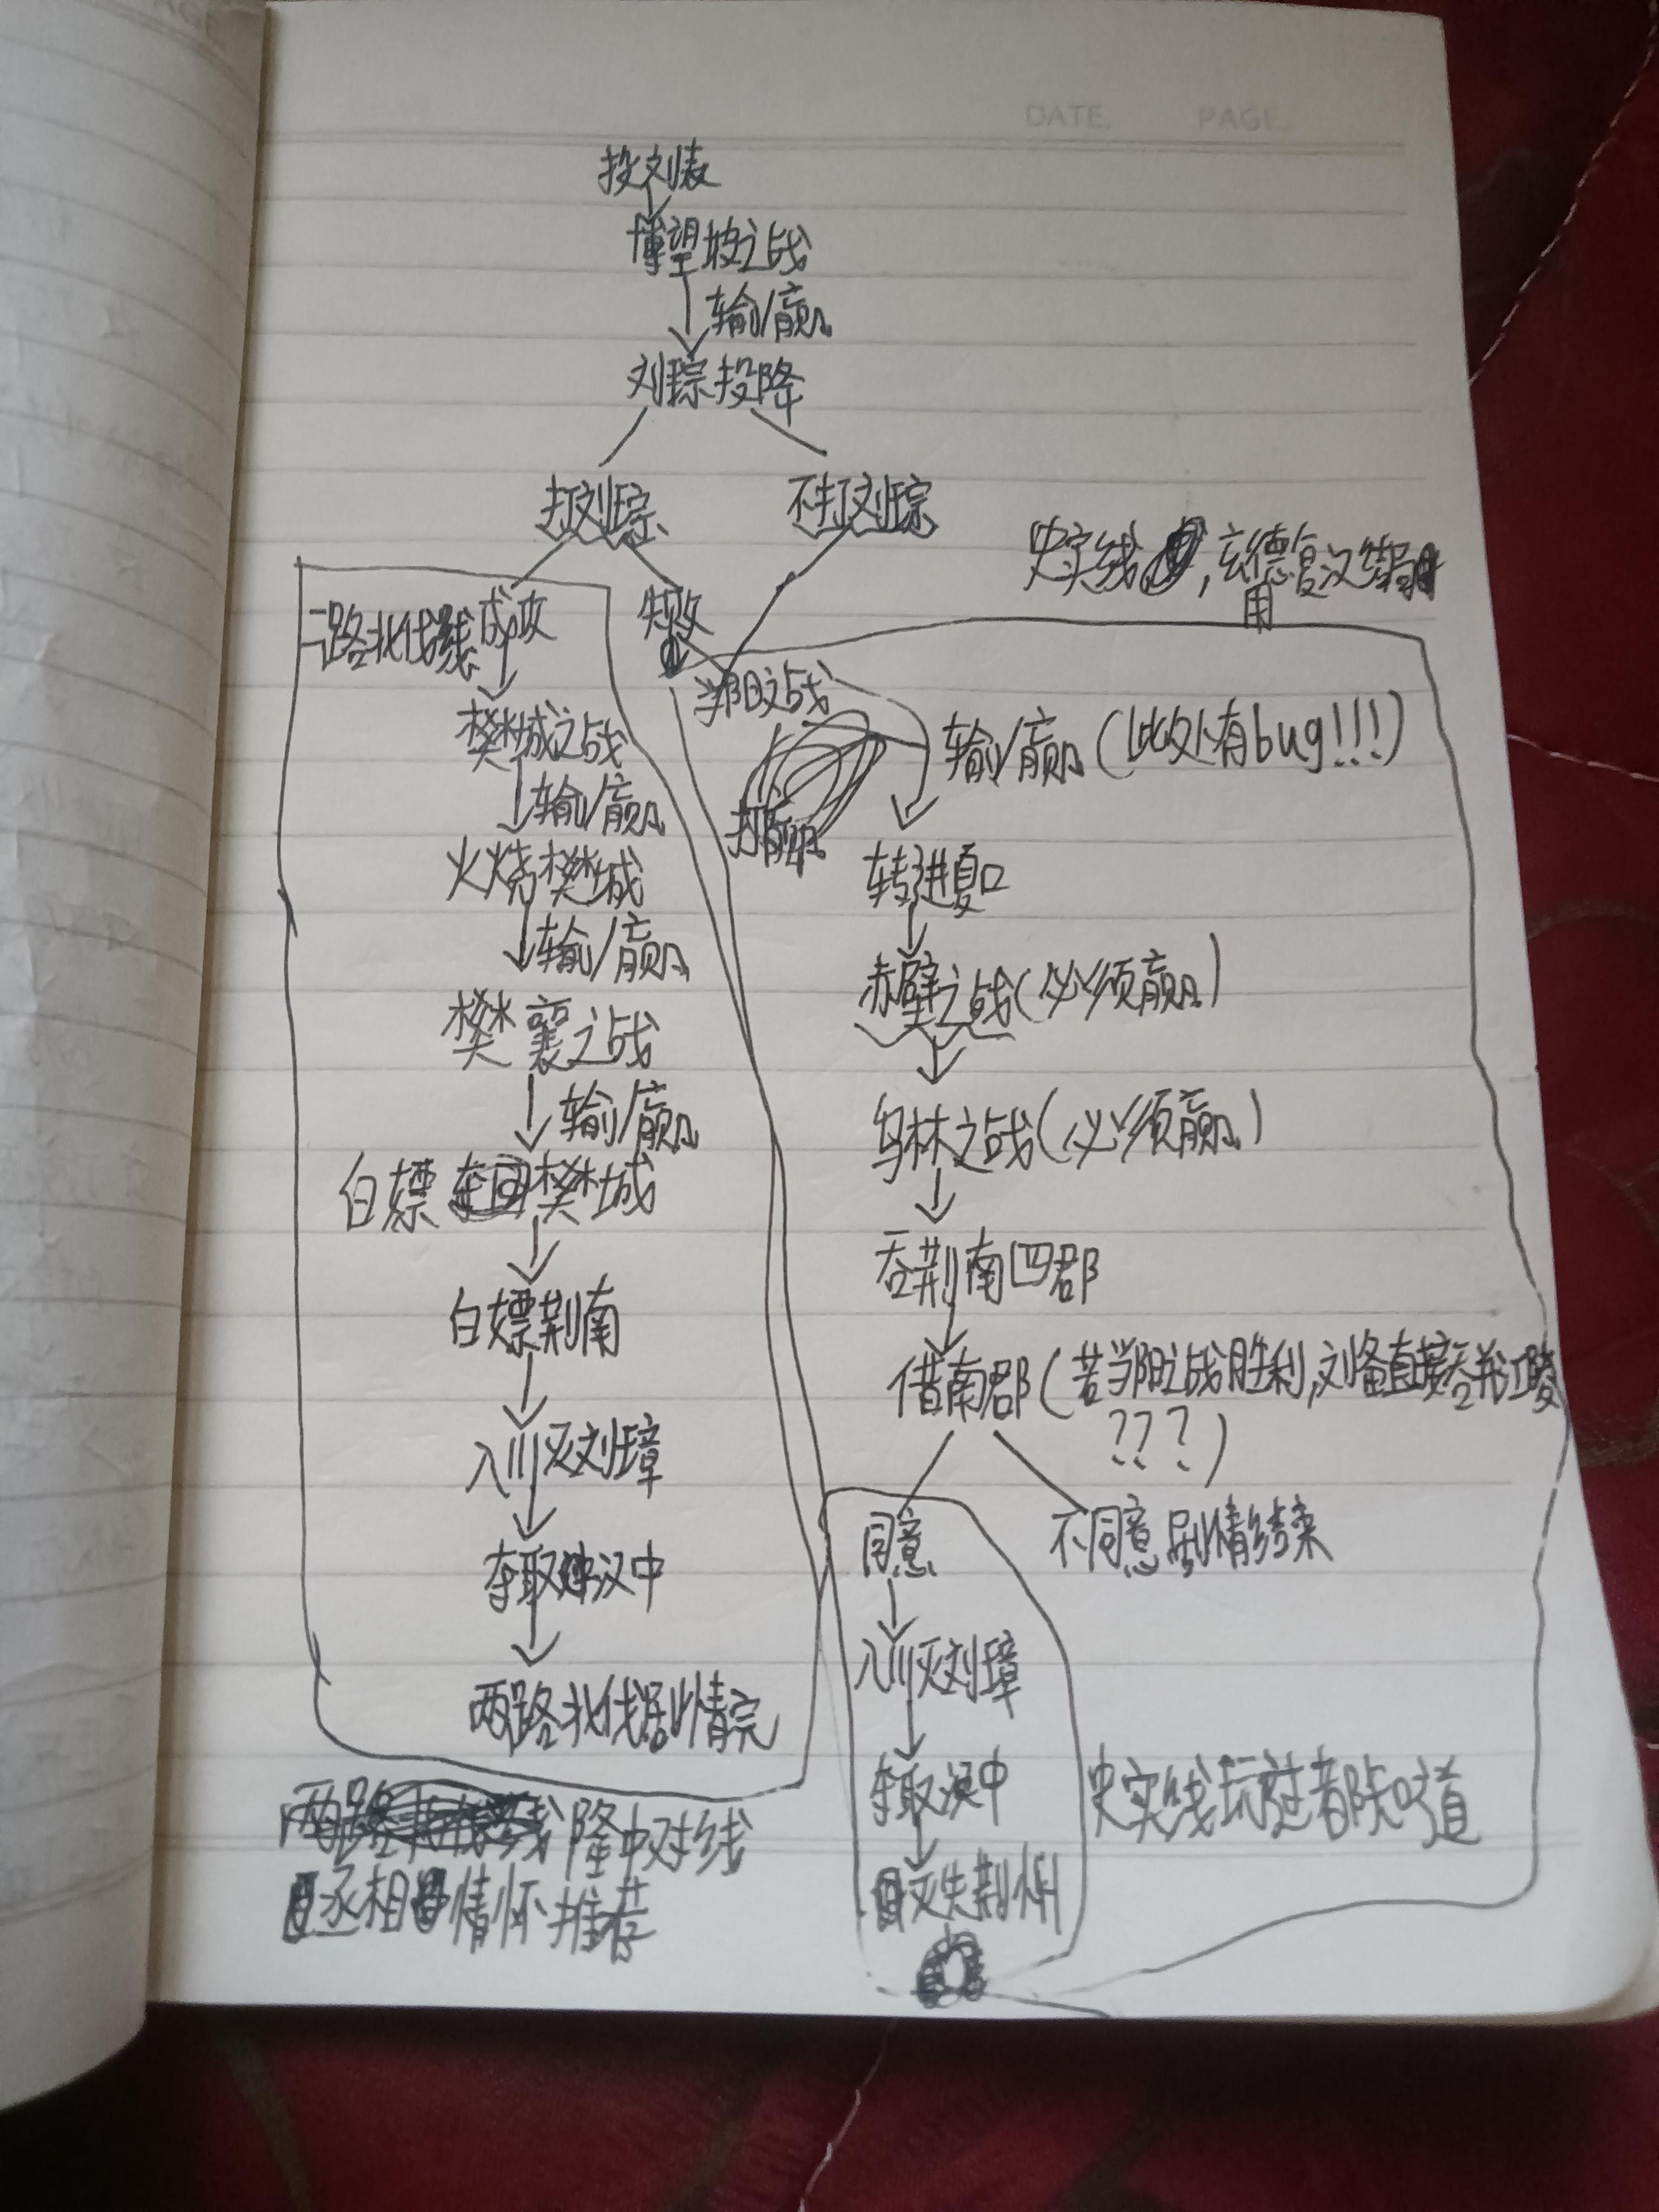 DATE. PAGE.
投刘表
博望坡之战
输/赢
刘琮投降
打刘琮 不打刘琮
史实线,玄德复汉结局
用
二路北伐线 成功
樊城之战
输/赢
火烧樊城
输/赢
樊襄之战
输/赢
白嫖樊城
白嫖荆南
入川灭刘璋
夺取汉中
两路北伐剧情完
隆中对线
丞相情怀推荐
失败
当阳之战
输/赢(此处有bug!!!)
转进夏口
赤壁之战(必须赢)
乌林之战(必须赢)
吞荆南四郡
借南郡(若当阳之战胜利,刘备直接吞并江陵
???)
同意 不同意 剧情结束
入川灭刘璋
夺取汉中
史实线玩过者都知道
失荆州